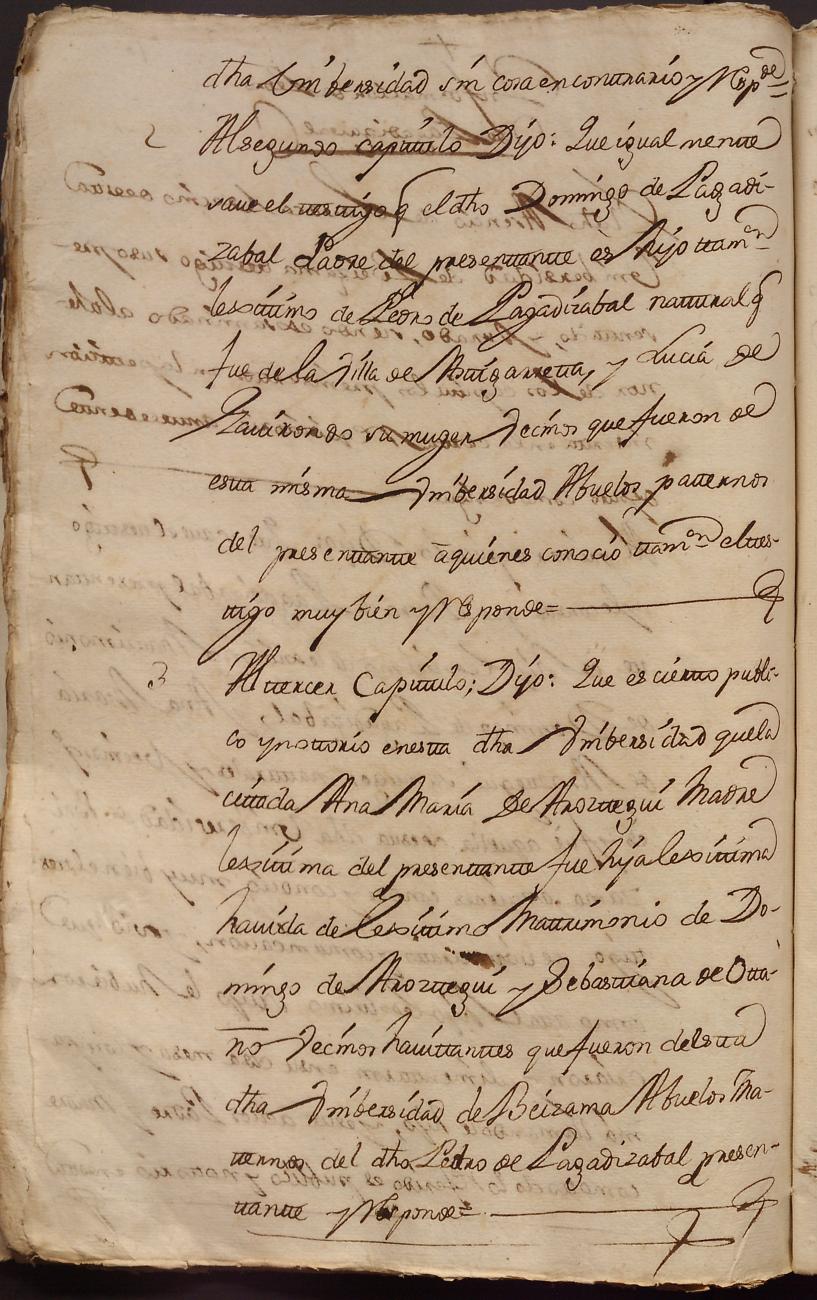 dha Vnibersidad sin cosa en contrario y Resp.de=
2 Al segundo capittulo Dijo: Que igualmentte
save el testtigo q̃ el dho Domingo de Lagadi-
zabal Padre del presenttantte es hijo ttam.en
lexittimo de Pedro de Lagadizabal nattural q̃
fue de la Villa de Astigarretta, y Lucia de
su muger Vecinos que fueron de
estta misma Vnibersidad Abuelos patternos
del presenttantte aquienes conocio ttam.en el tes-
ttigo muy bien y Responde=
3 Al ttercer Capittulo; Dijo: Que es cierto publi-
co y nottorio en estta dha Vnibersidad que la
cittada Ana Maria de Arozttegui Madre
lexittima del presenttantte fue hija lexittima
havida de lexittimo Mattrimonio de Do-
mingo de Arozttegui y Sebasttiana de Otta-
ño Vecinos havittanttes que fueron de estta
dha Vnibersidad de Beizama Abuelos Ma-
tternos del dho Pedro de Lagadizabal presen-
ttantte y Responde=